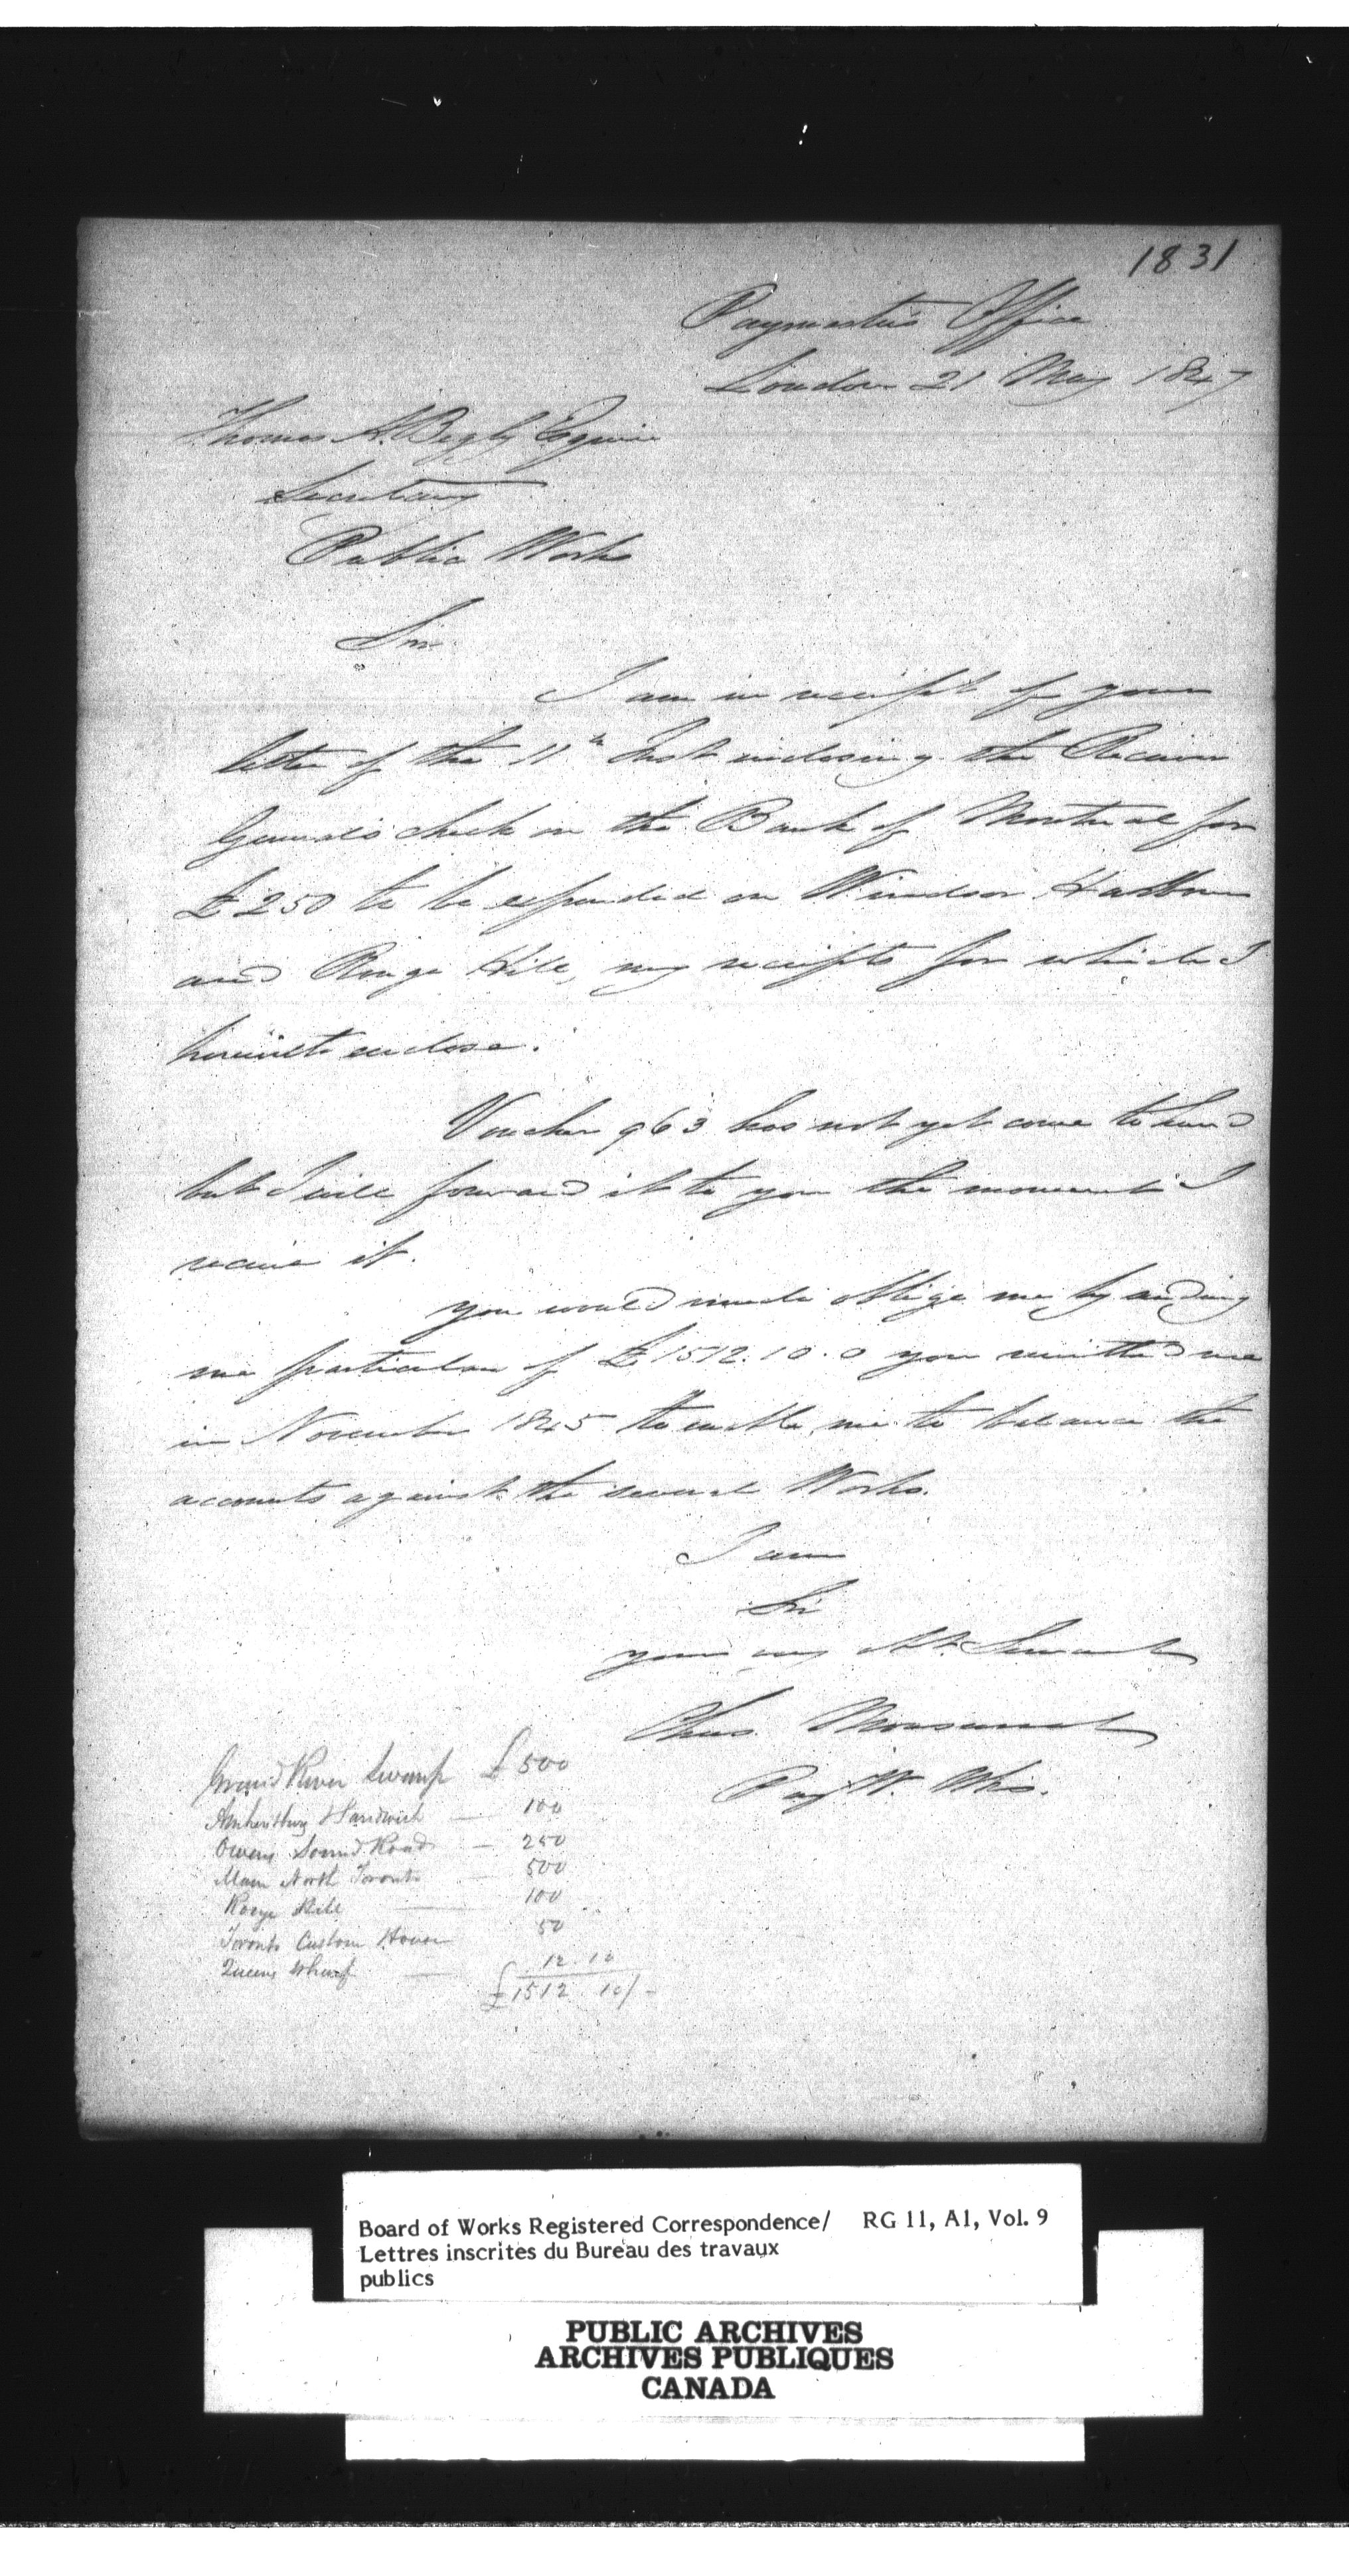 1831
Paymaster's Office
London 21 May 1847
Thomas A. Begly Esquire
Secretary
Public Works
Sir
I am in receipt of your
letter of the 11th Inst enclosing the Receiver
General's check on the Bank of Montreal for
£250 to be expended on Windsor Harbour
and Rouge Hill, my receipts for which I
herewith enclose.
Voucher 963 has not yet come to hand
but I will forward it to you the moment I
receive it.
you would much oblige me by sending
me particulars of £1512.10.0 you remitted me
in November 1845 to enable me to balance the
accounts against the several Works.
I am
Sir
your Obt. Servant
Thos.
Pay W. Wks.
Grand River Swamp £500
Amherstburg & Sandwich — 100
Owens Sound Road — 250
Main North Toronto — 500
Rouge Hill — 100
Toronto Custom House 50
Queens Wharf — 12.10
£1512.10/-
Board of Works Registered Correspondence/ RG 11, A1, Vol. 9
Lettres inscrites du Bureau des travaux
publics
PUBLIC ARCHIVES
ARCHIVES PUBLIQUES
CANADA